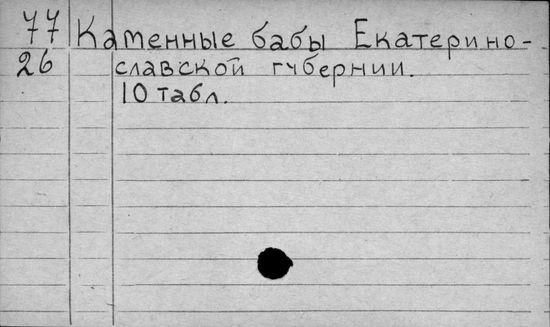 77 Каменные бабы Екатерино-
26 славской губернии.
10 табл.